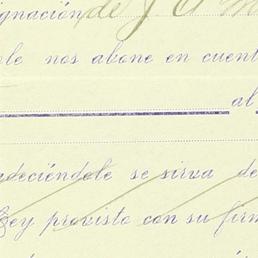 ignación de J. A. M
le nos abone en cuent
al
adeciéndole se sirva de
Ley provisto con su firm